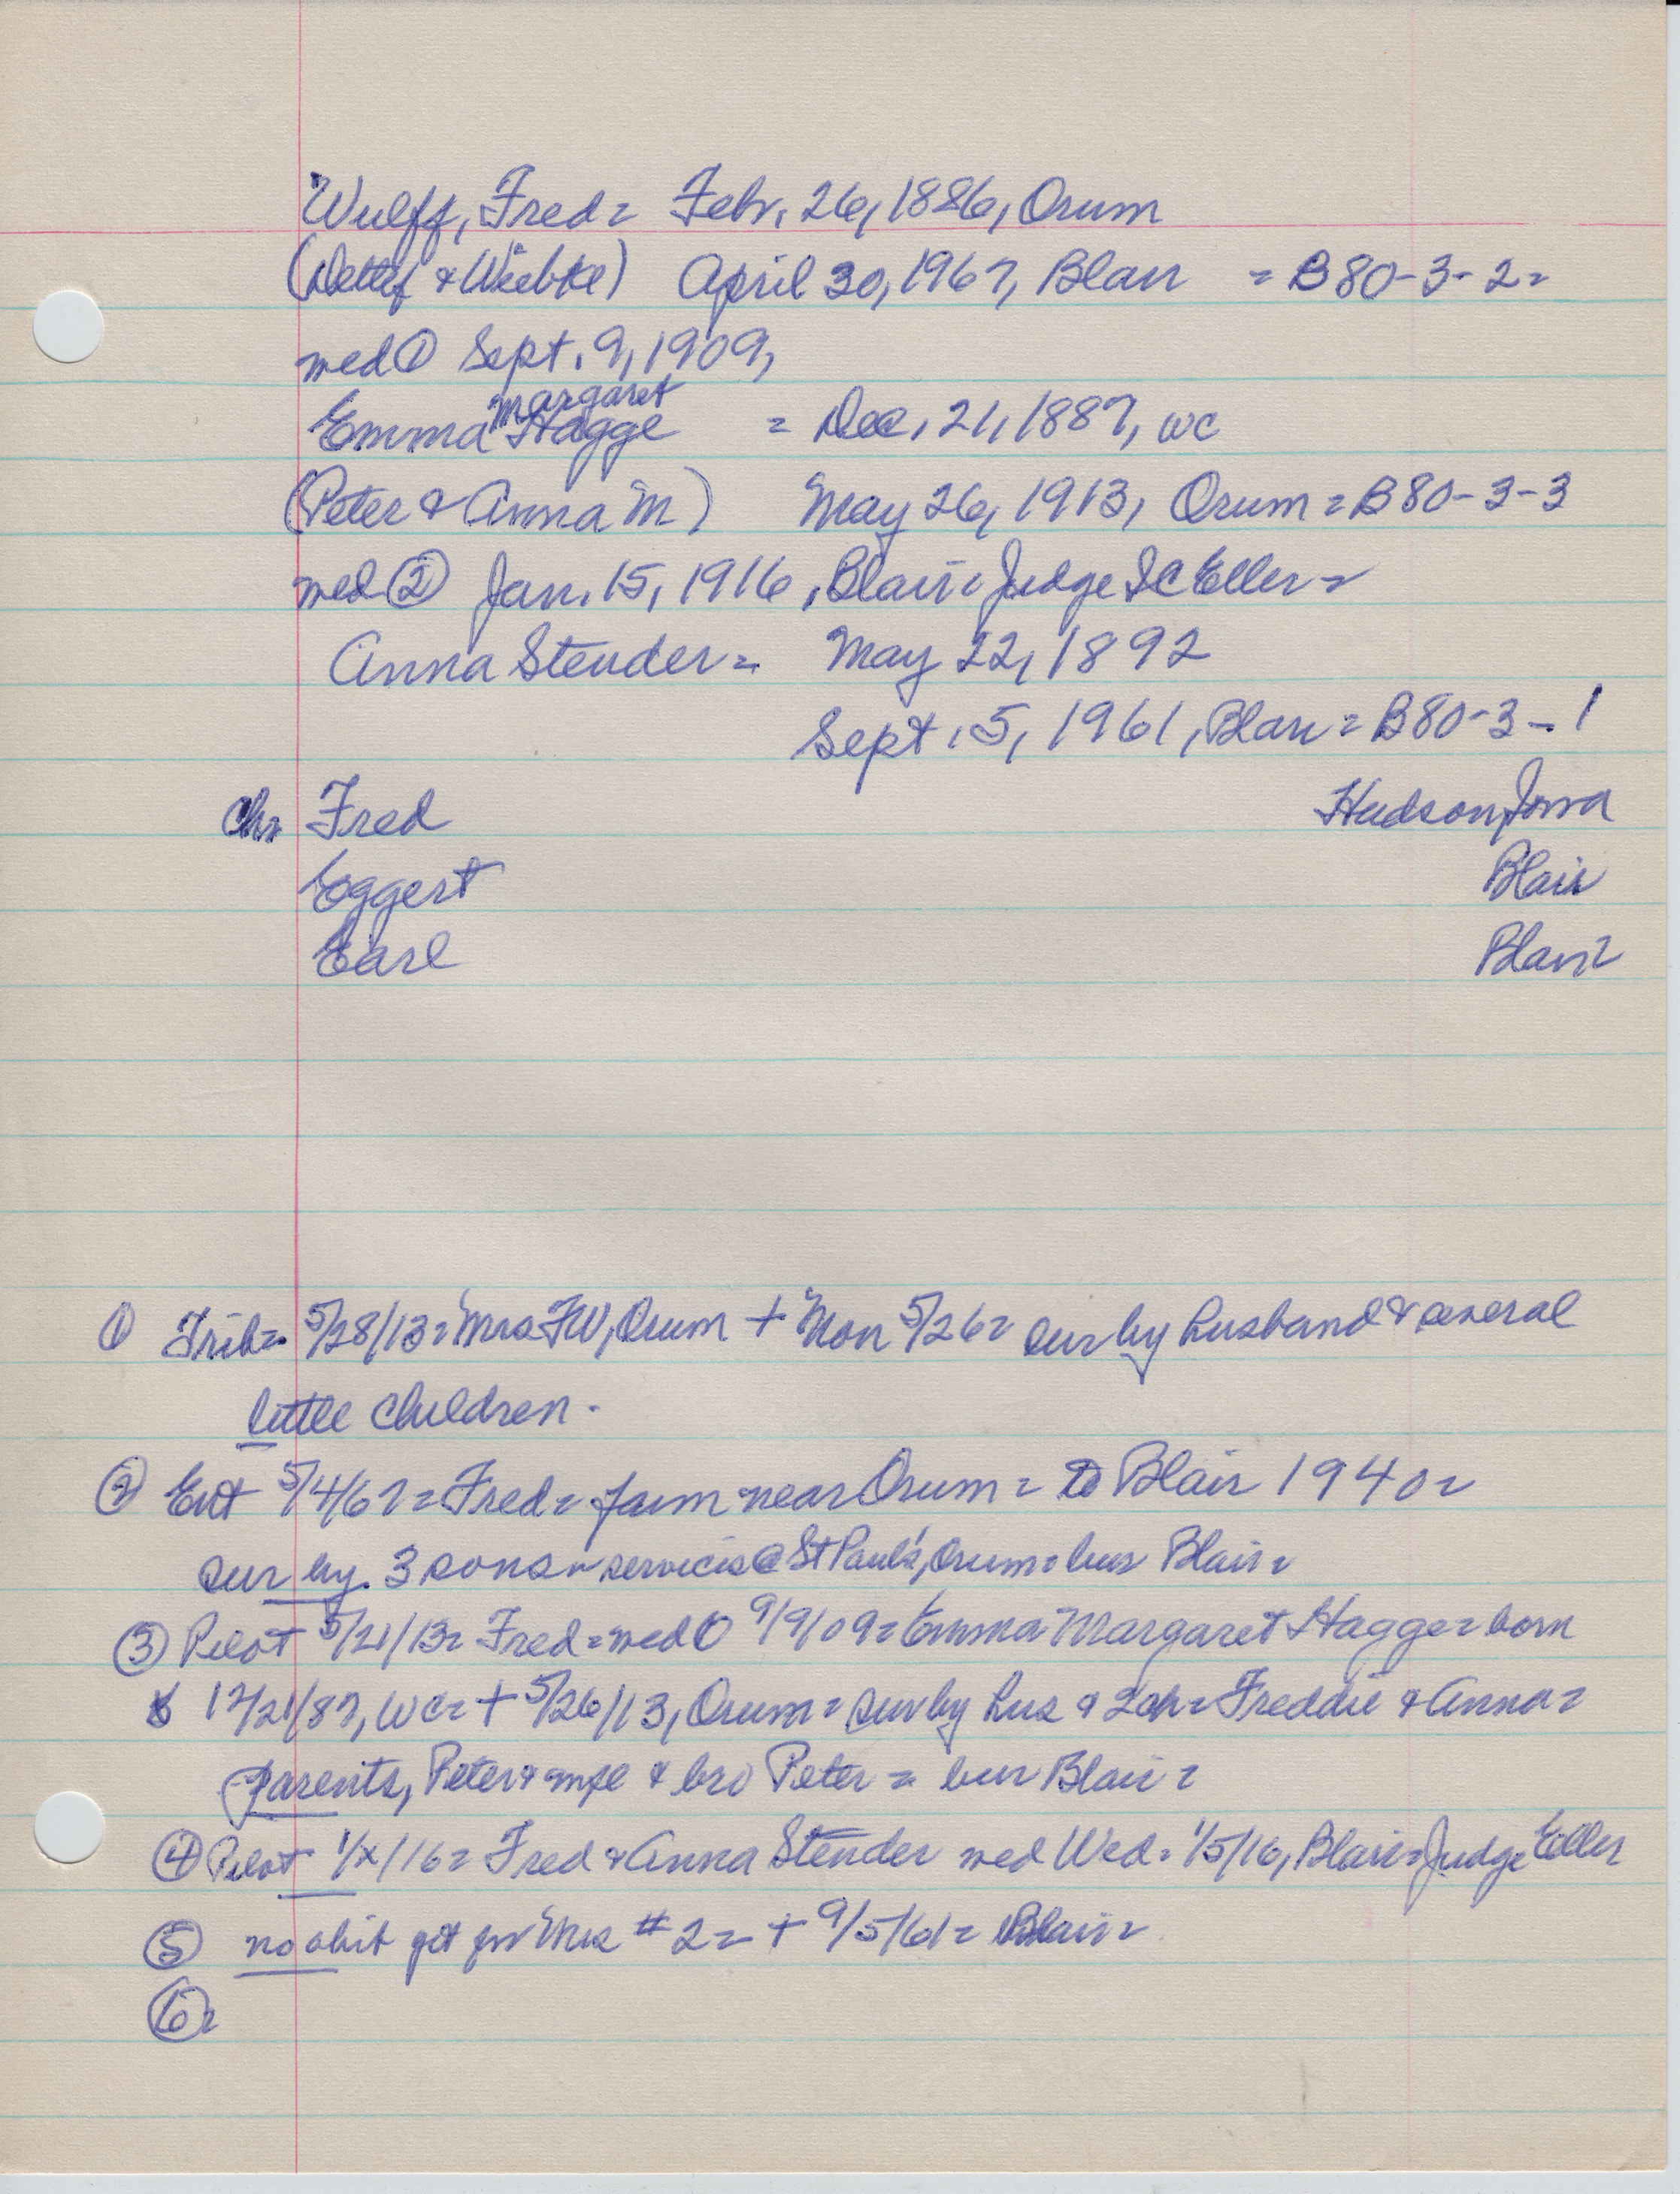 Wulff, Fred = Febr. 26, 1886, Orum
(Detlef & Wiebke) April 30, 1967, Blair = B80-3-2=
med ① Sept. 9, 1909,
Margaret
Emma Hagge = Dec. 21, 1887, WC
(Peter & Anna M) May 26, 1913, Orum = B80-3-3
med ② Jan. 15, 1916, Blair = Judge IC Eller =
Anna Stender = May 22, 1892
Sept. 5, 1961, Blair = B80-3-1
Ch= Fred Hudson, Iowa
Eggert Blair
Earl Blair=
① Trib= 5/28/13= Mrs FW, Orum + Mon 5/26= sur by husband & several
little children.
② Ent 5/4/67= Fred= farm near Orum = to Blair 1940=
sur by 3 sons = services @ St Paul's, Orum = bur Blair=
③ Pilot 5/21/13= Fred = med ① 9/9/09= Emma Margaret Hagge= born
12/21/87, WC= + 5/26/13, Orum = sur by hus & 2 ch= Freddie & Anna=
parents, Peter & wife & bro Peter = bur Blair =
④ Pilot 1/x/16= Fred & Anna Stender med Wed. 1/5/16, Blair= Judge Eller
⑤ no obit get for Mrs #2= + 9/5/61= Blair=
⑥=